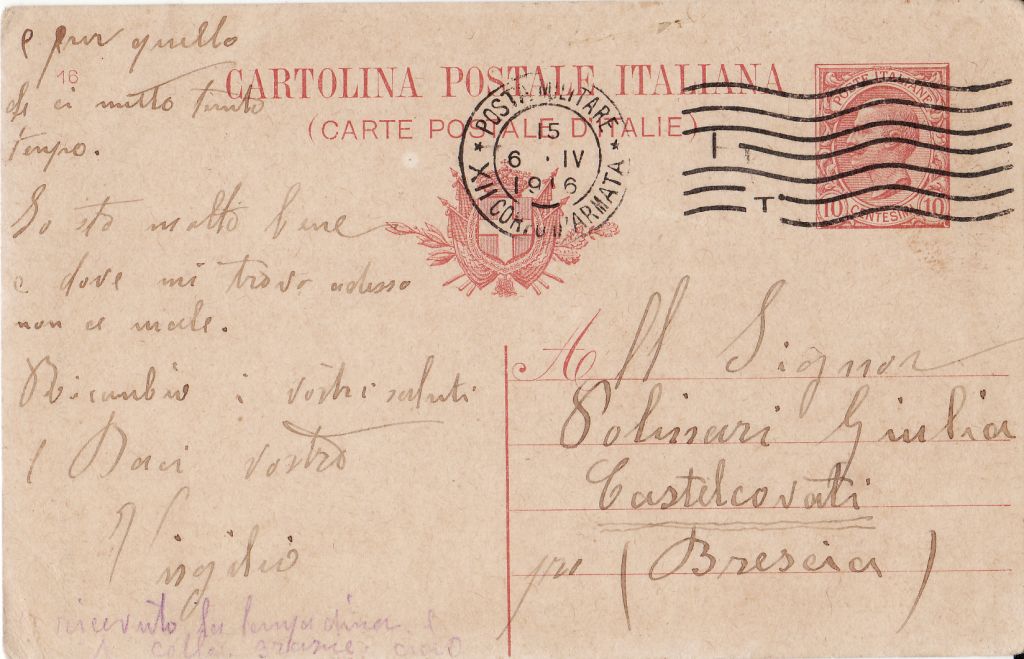 e pur quello
16
CARTOLINA POSTALE ITALIANA
(CARTE POSTALE D'ITALIE)
che ci metto tanto
tempo.
POSTA MILITARE
15
6 · IV
1916
XII CORPO D'ARMATA
POSTE ITALIANE
10 CENTESIMI 10
Io sto molto bene
e dove mi trovo adesso
non c'è male.
Ricambio i vostri saluti
e Baci vostro
Virgilio
All Signor
Polinari Giulia
Castelcovati
(Brescia)
ricevuto la lampadina e
colla grazie ciao